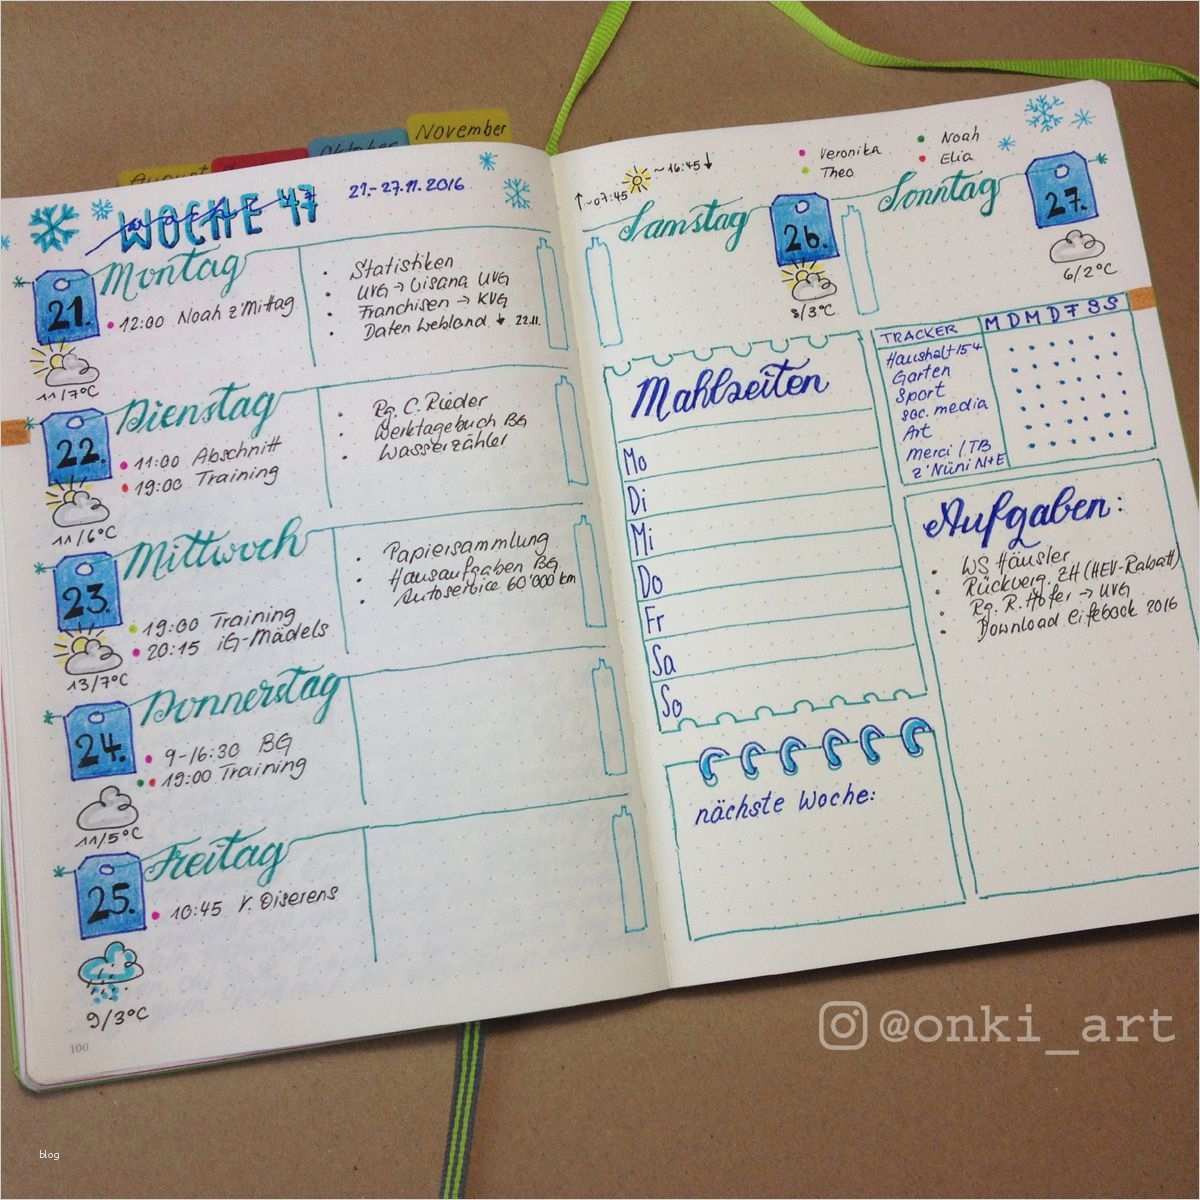 August
Oktober
November
WOCHE 47
21.-27.11.2016
Montag
21.
12:00 Noah z'Mittag
11/7°C
• Statistiken
• UVG → Visana UVG
• Franchisen → KVG
• Daten Webland ↓ 22.11.
Dienstag
22.
11:00 Abschnitt
19:00 Training
11/6°C
• Rg. C. Rieder
• Werktagebuch BG
• Wasserzähler
Mittwoch
23.
19:00 Training
20:15 iG-Mädels
13/7°C
• Papiersammlung
• Hausaufgaben BG
• Autoservice 60'000 km
Donnerstag
24.
9-16:30 BG
19:00 Training
11/5°C
Freitag
25.
10:45 V. Oiserens
9/3°C
100
↑~07:45
~16:45↓
• Veronika
• Theo
• Noah
• Elia
Samstag
26.
8/3°C
Sonntag
27.
6/2°C
Mahlzeiten
Mo
Di
Mi
Do
Fr
Sa
So
TRACKER M D M D F S S
Haushalt 15 4
Garten
Sport
soc. media
Art
Merci / TB
z'Nüni N+E
Aufgaben:
• WS Häusler
• Rückverg. ZH (HEV-Rabatt)
• Rg. R. Hofer → UVG
• Download Eifeback 2016
nächste Woche:
@onki_art
blog